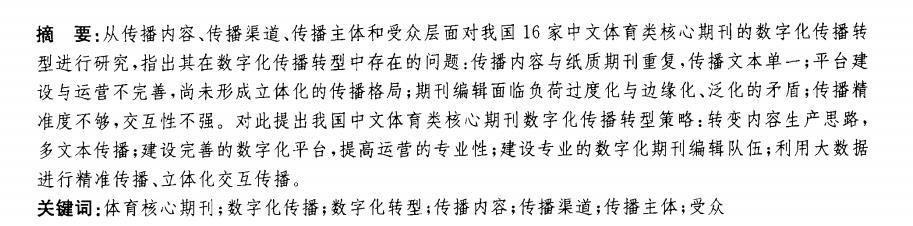 摘　要:从传播内容、传播渠道、传播主体和受众层面对我国 16 家中文体育类核心期刊的数字化传播转
型进行研究,指出其在数字化传播转型中存在的问题:传播内容与纸质期刊重复,传播文本单一;平台建
设与运营不完善,尚未形成立体化的传播格局;期刊编辑面临负荷过度化与边缘化、泛化的矛盾;传播精
准度不够,交互性不强。对此提出我国中文体育类核心期刊数字化传播转型策略:转变内容生产思路,
多文本传播;建设完善的数字化平台,提高运营的专业性;建设专业的数字化期刊编辑队伍;利用大数据
进行精准传播、立体化交互传播。
关键词:体育核心期刊;数字化传播;数字化转型;传播内容;传播渠道;传播主体;受众